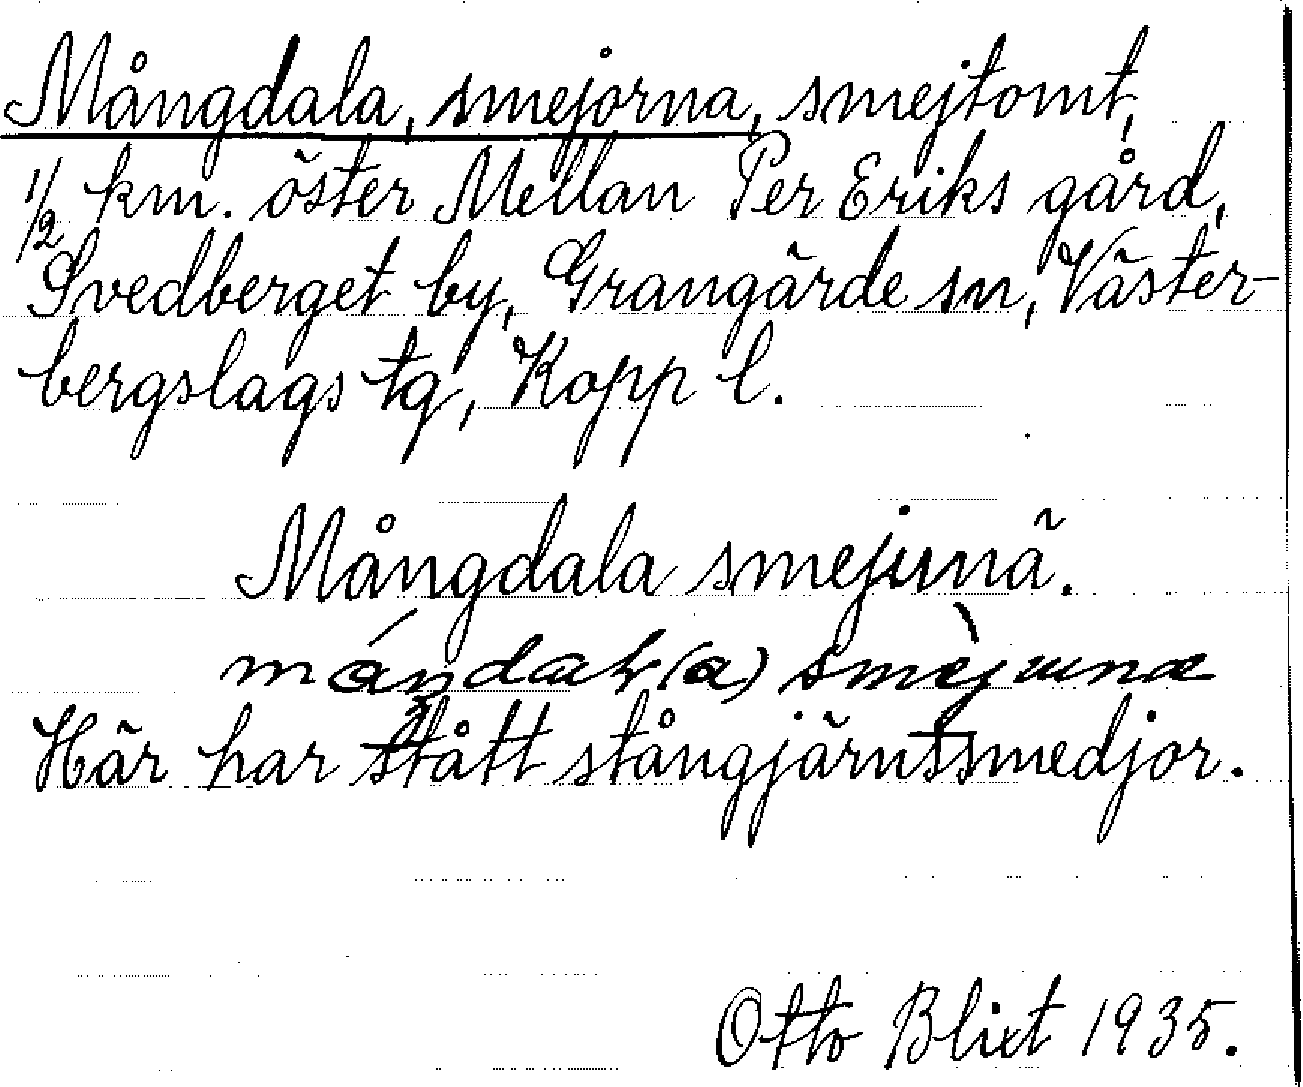 Mångdala, smejorna, smejtomt,
1/2 km. öster Mellan Per Eriks gård,
Svedberget by, Grangärde sn, Väster-
bergslags tg, Kopp l.
Mångdala smejunä.
Här har stått stångjärnssmedjor.
Otto Blixt 1935.